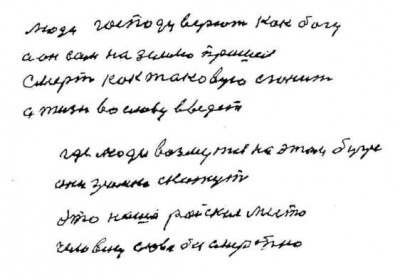 люди господу верют как богу
а он сам на землю пришол
смерт как таковую сгонит
а жизн во славу введет
где люди возмутся на этом бугре
они громко скажут
это наша райская место
человеку слова бисмертно